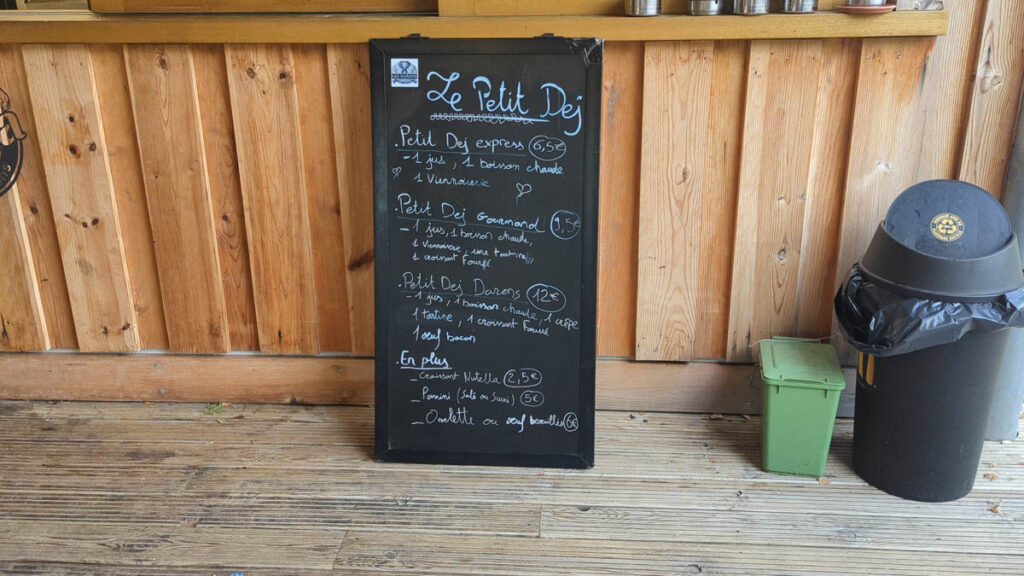 Le Petit Dej
.Petit Dej express 6,5€
- 1 jus, 1 boisson chaude
1 Viennoiserie
Petit Dej Gourmand 9,5€
- 1 jus, 1 boisson chaude,
1 Viennoiserie, une tartine
1 croissant Fourré
.Petit Dej Darons 12€
- 1 jus, 1 boisson chaude, 1 crêpe
1 tartine, 1 croissant Fourré
1 oeuf bacon
.En plus
- Croissant Nutella 2,5€
- Pannini (Salé ou Sucré) 5€
- Omelette ou oeuf brouillés 6€